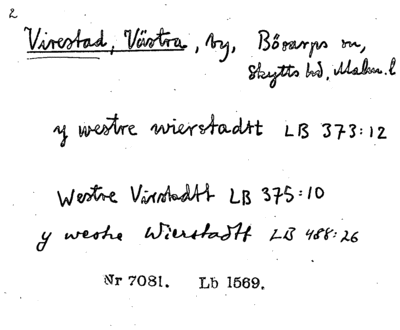 2
Virestad, Västra, by, Bösarps sn,
Skytts hd, Malm. l
y westre wierstadtt LB 373:12
Westre Virstadtt LB 375:10
y westre Wierstadtt LB 488:26
Nr 7081. Lb 1569.